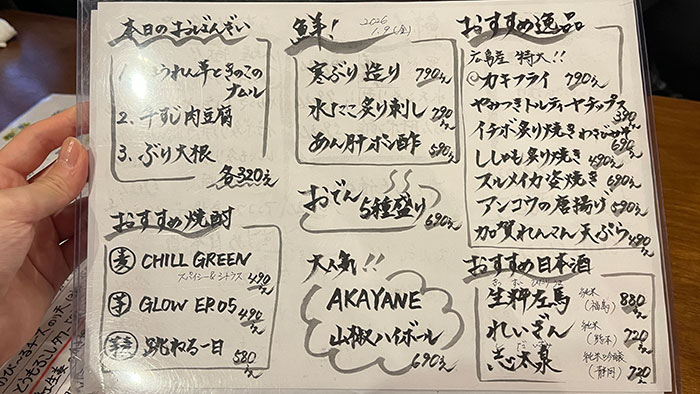 本日のおばんざい
1. ほうれん草ときのこの
ナムル
2. 牛すじ肉豆腐
3. ぶり大根
各320えん
おすすめ焼酎
麦 CHILL GREEN
スパイシー&シトラス 490えん
芋 GLOW EP.05
490えん
跳ねる一日
580えん
鮮!
2026
1.9(金)
寒ぶり造り 790えん
水たこ炙り刺し 790えん
あん肝ポン酢 590えん
おでん
5種盛り
690えん
大人気!!
AKAYANE
山椒ハイボール
690えん
おすすめ逸品
広島産 特大!!
カキフライ 790えん
やみつきトルティーヤチップス
390えん
イチボ炙り焼きわさびせ
690えん
ししゃも炙り焼き 490えん
スルメイカ姿焼き 690えん
アンコウの唐揚げ 590えん
加賀れんこん天ぷら 490えん
おすすめ日本酒
生粋左馬 純米(福島) 880えん
れいざん 純米(熊本) 720えん
志太泉 純米吟醸(静岡) 720えん